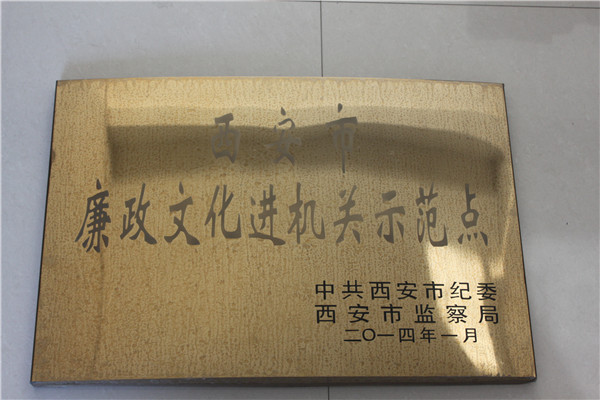 西安市
廉政文化进机关示范点
中共西安市纪委
西安市监察局
二〇一四年一月